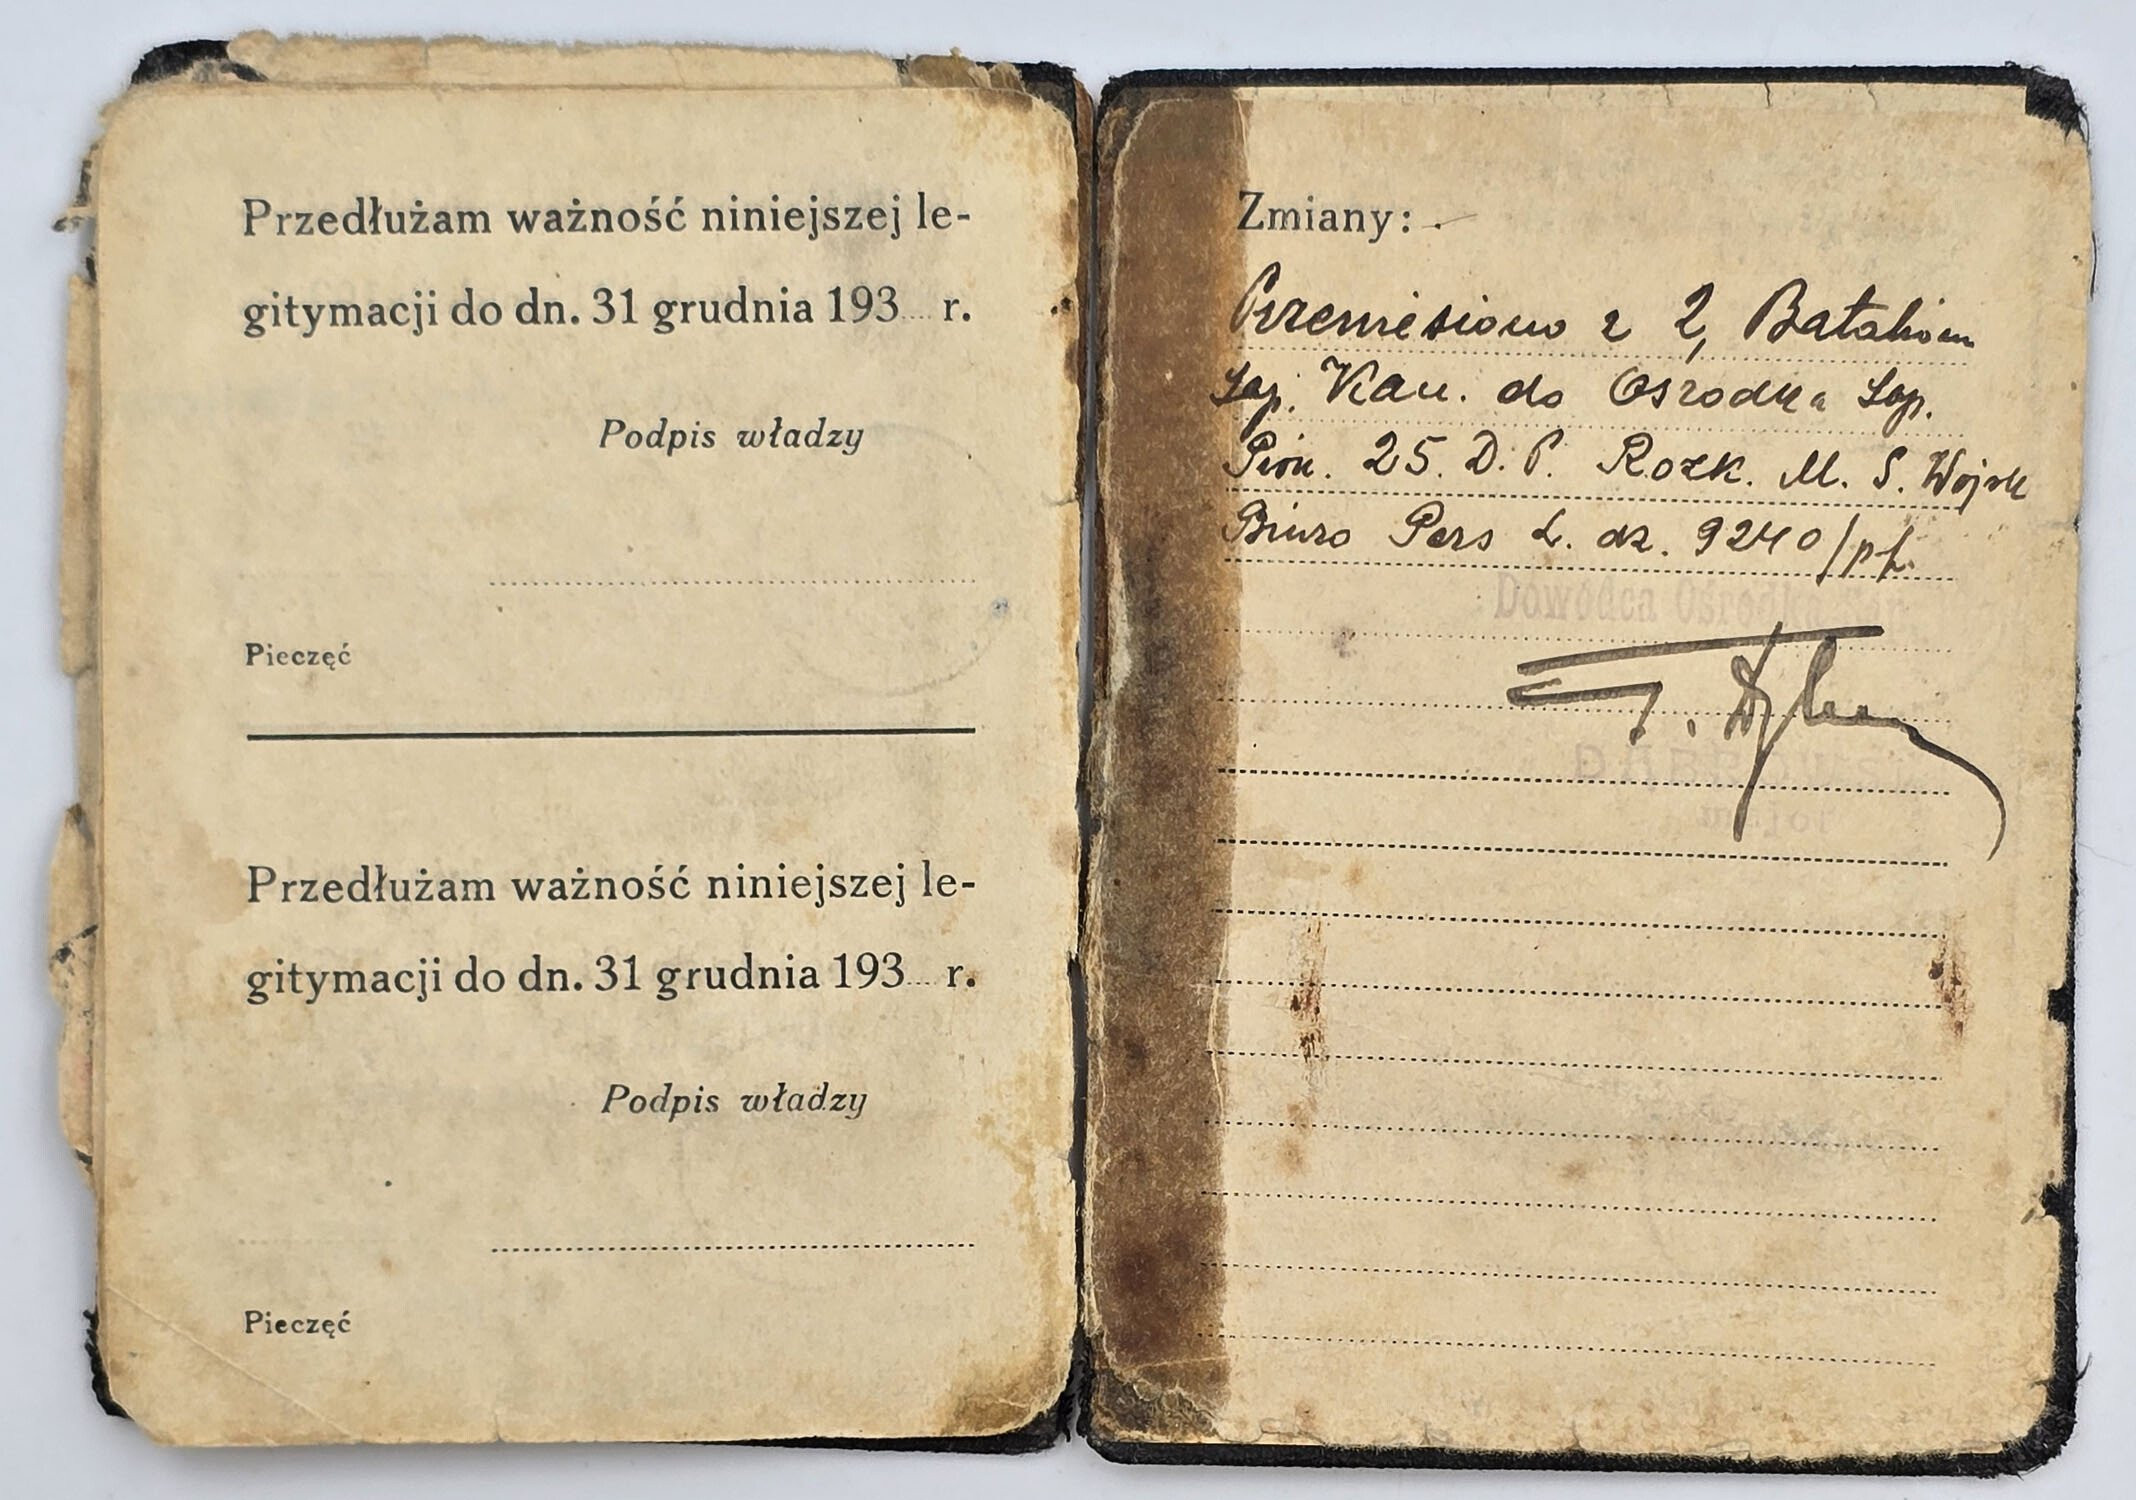 Przedłużam ważność niniejszej le-
gitymacji do dn. 31 grudnia 193.... r.
Podpis władzy
Pieczęć
Przedłużam ważność niniejszej le-
gitymacji do dn. 31 grudnia 193.... r.
Podpis władzy
Pieczęć
Zmiany:
Przeniesiono z 2, Batalionu
Sap. Kan. do Ośrodka Sap.
Pion. 25. D. P. Rozk. M. S. Wojsk
Biuro Pers L. dz. 9240/pf.
Dowódca Ośrodka Sap.